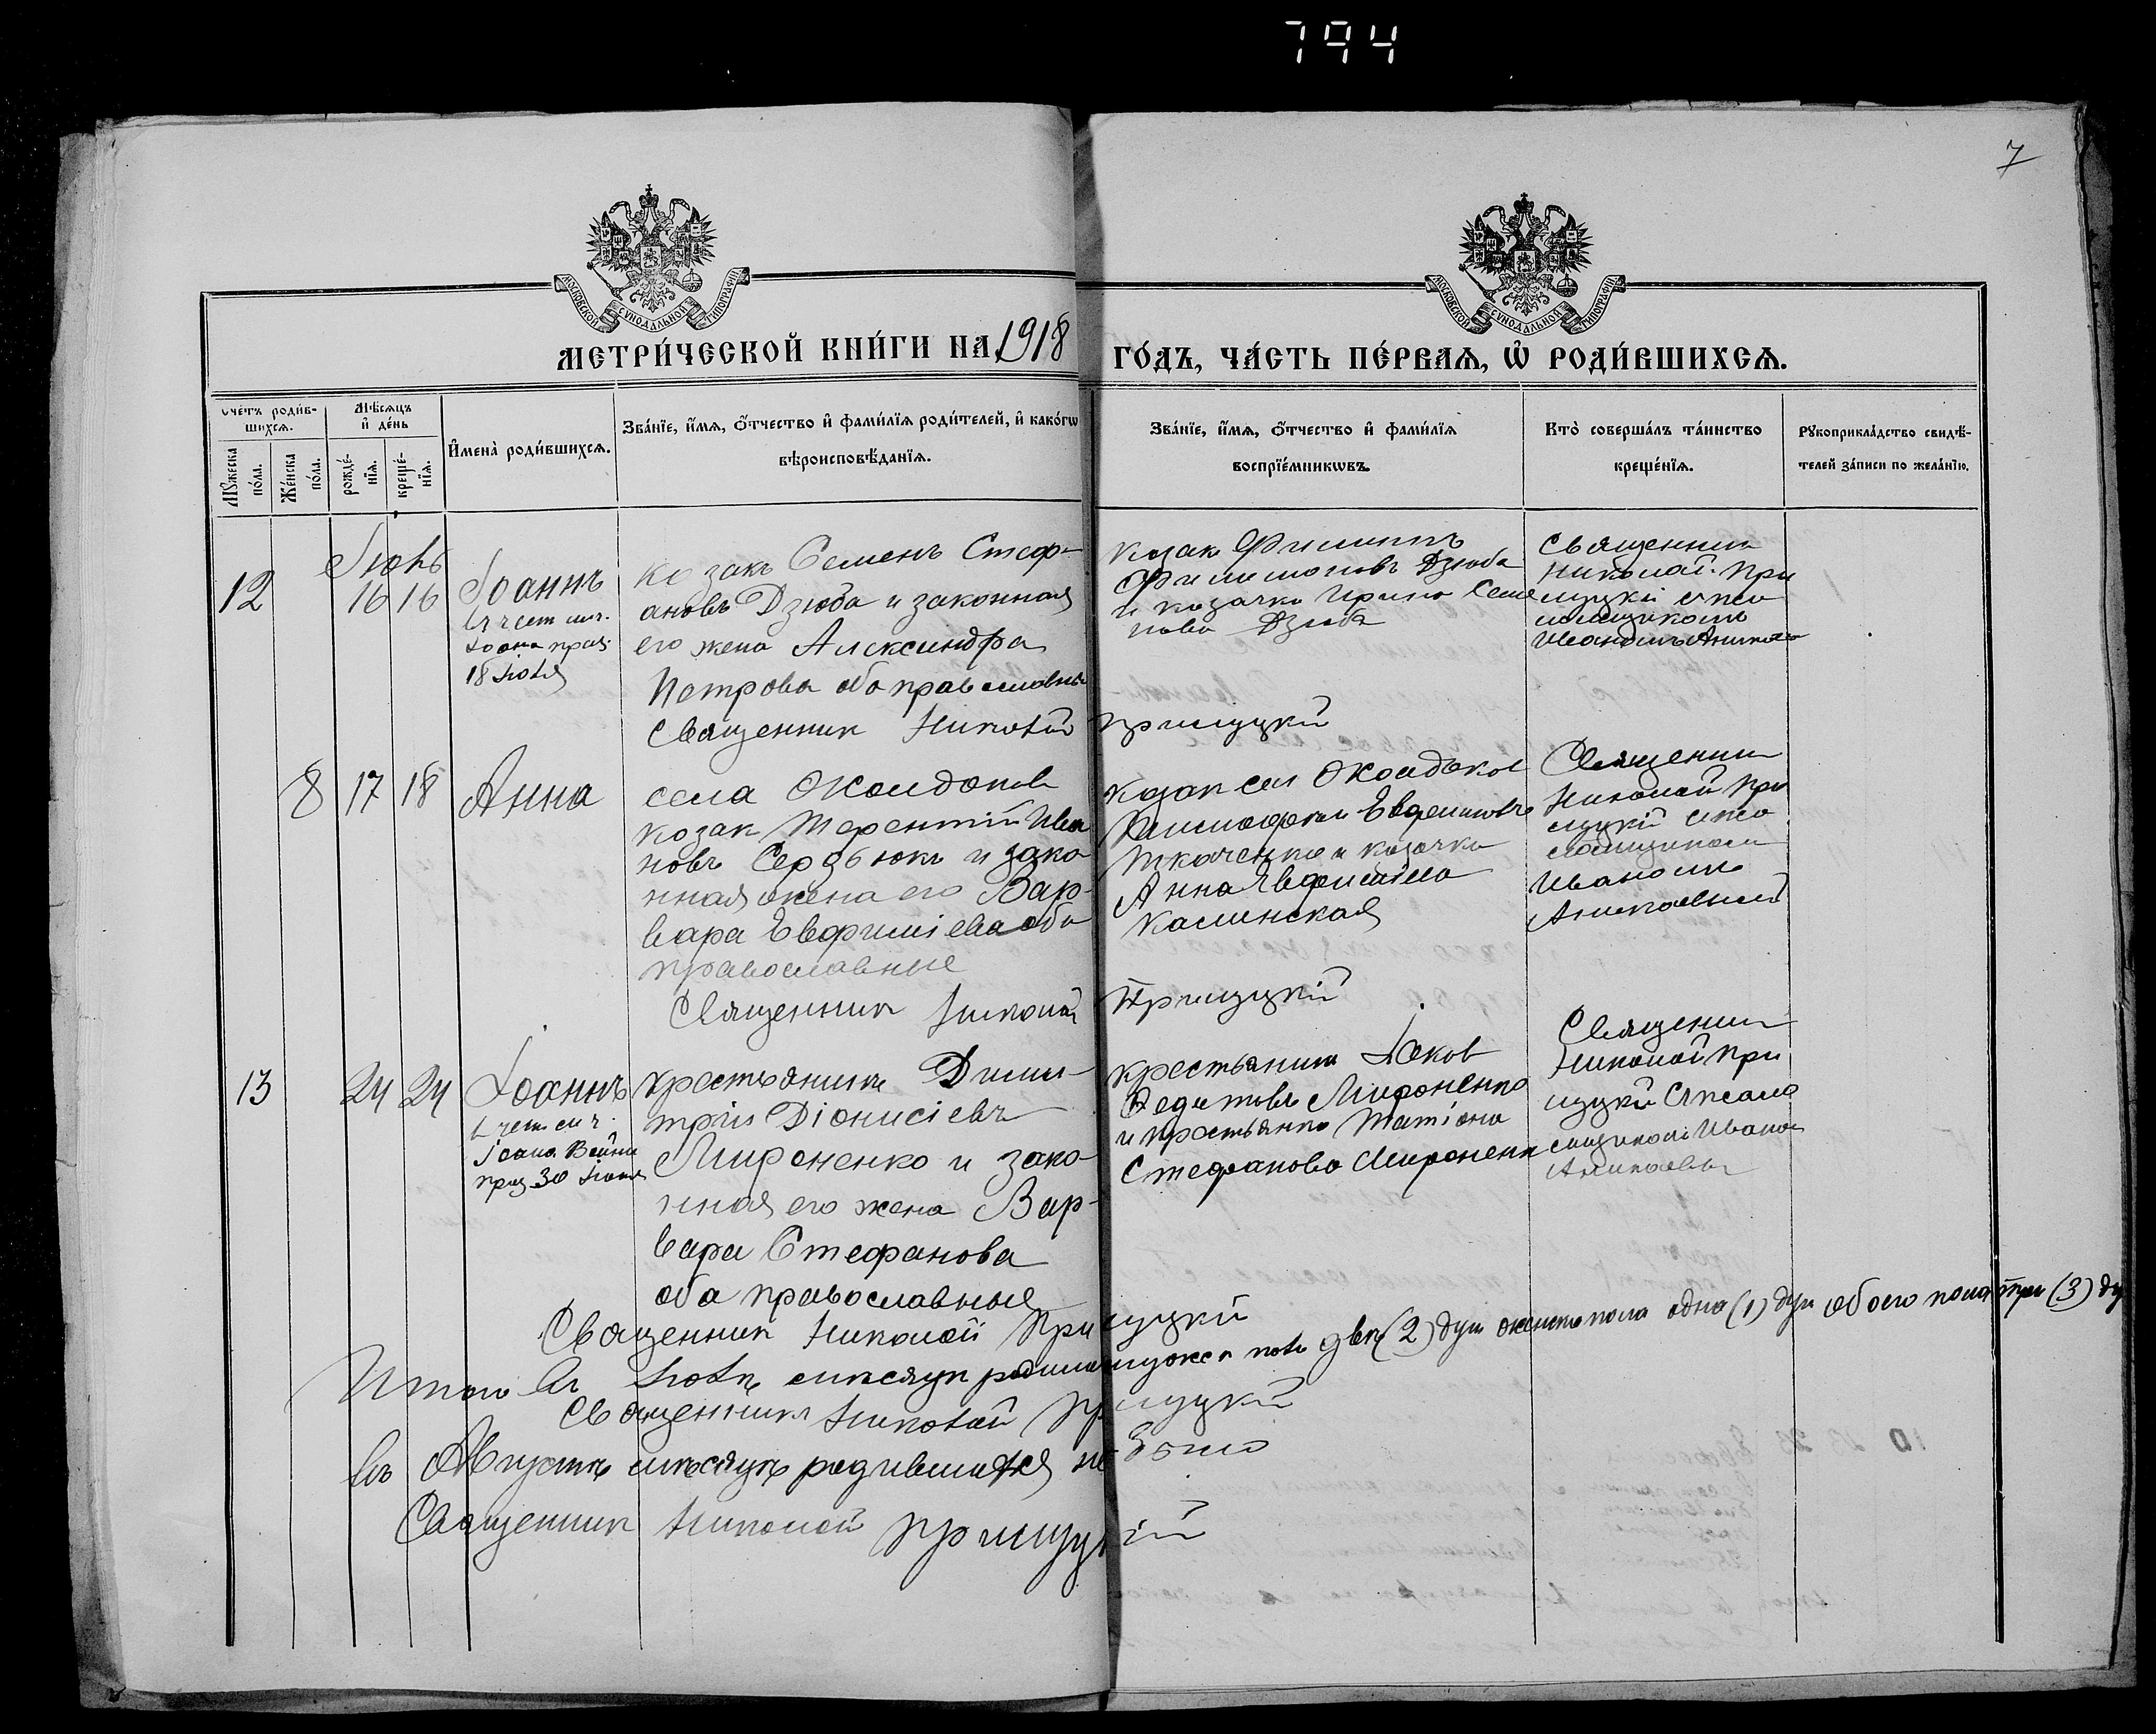 794
7
МОСКОВСКОЙ СѴНОДАЛЬНОЙ ТИПОГРАФІИ
МОСКОВСКОЙ СѴНОДАЛЬНОЙ ТИПОГРАФІИ
МЕТРИ́ЧЕСКОЙ КНИ́ГИ НА 1918 ГО́ДЪ, ЧА́СТЬ ПЕ́РВАѦ, Ѽ РОДИ́ВШИХСѦ.
Сче́тъ роди́в-
шихсѧ.
Мѣ́сѧцъ
и҆ де́нь
Мꙋ́жеска
по́ла.
Же́нска
по́ла.
рожде́-
нїѧ.
креще́-
нїѧ.
И҆мена̀ роди́вшихсѧ.
Зва́нїе, и҆́мѧ, ѻ҆́тчество и҆ фами́лїѧ роди́телей, и҆ како́гѡ
вѣроисповѣ́данїѧ.
Зва́нїе, и҆́мѧ, ѻ҆́тчество и҆ фами́лїѧ
воспрїе́мникѡвъ.
Кто̀ соверша́лъ та́инство
креще́нїѧ.
Рꙋкоприкла́дство свидѣ́-
телей за́писи по жела́нїю.
Іюль
12
16 16
Іоаннъ
18 Іюля
козакъ Семенъ Стеф-
ановъ Дзюба и законная
его жена Александра
Петрова оба православны
козак Филиппъ
Филимоновъ Дзюба
и козачка Ирина Семе
нова Дзюба
Священник
Николай При
луцкій с пса
ломщиком
Иваномъ
Священник Николай Прилуцкій
8 17 18
Анна
села
козак Терентій Ива
новъ Сердюкъ и зако
нная жена его Вар-
вара Евфиміева оба
православные
козак сел
Евфимовъ
Ткаченко и козачка
Анна Евфиміева
Калинская
Священник
Николай При
луцкій с пса
ломщиком
Иваном
Священник Николай Прилуцкій
13
24 24
Іоаннъ
праз 30 Іюля
крестьянинъ Дими-
трій Діонисіевъ
Мироненко и зако-
нная его жена Вар-
вара Стефанова
оба православные
крестьянин Іаков
Федотовъ Мироненко
и крестьянка Татіана
Стефанова Мироненк
Священник
Николай При
луцкій с псало
мщиком Иваном
Священник Николай Прилуцкій
Итого въ Іюлѣ мѣсяцѣ родилось мужск пола двѣ (2) душ женска пола одна (1) душ обоего пола три (3) ду
Священник Николай Прилуцкій
Въ Августѣ мѣсяцѣ родившихся не было
Священник Николай Прилуцкій